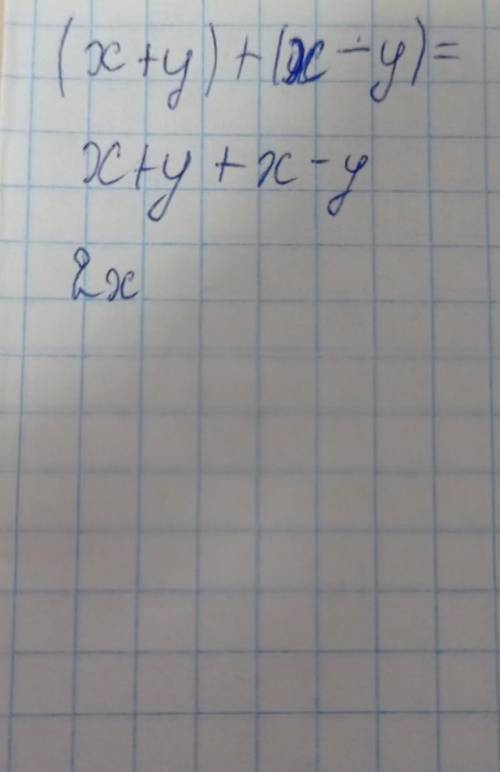 (x+y)+(x-y)=
x+y+x-y
2x